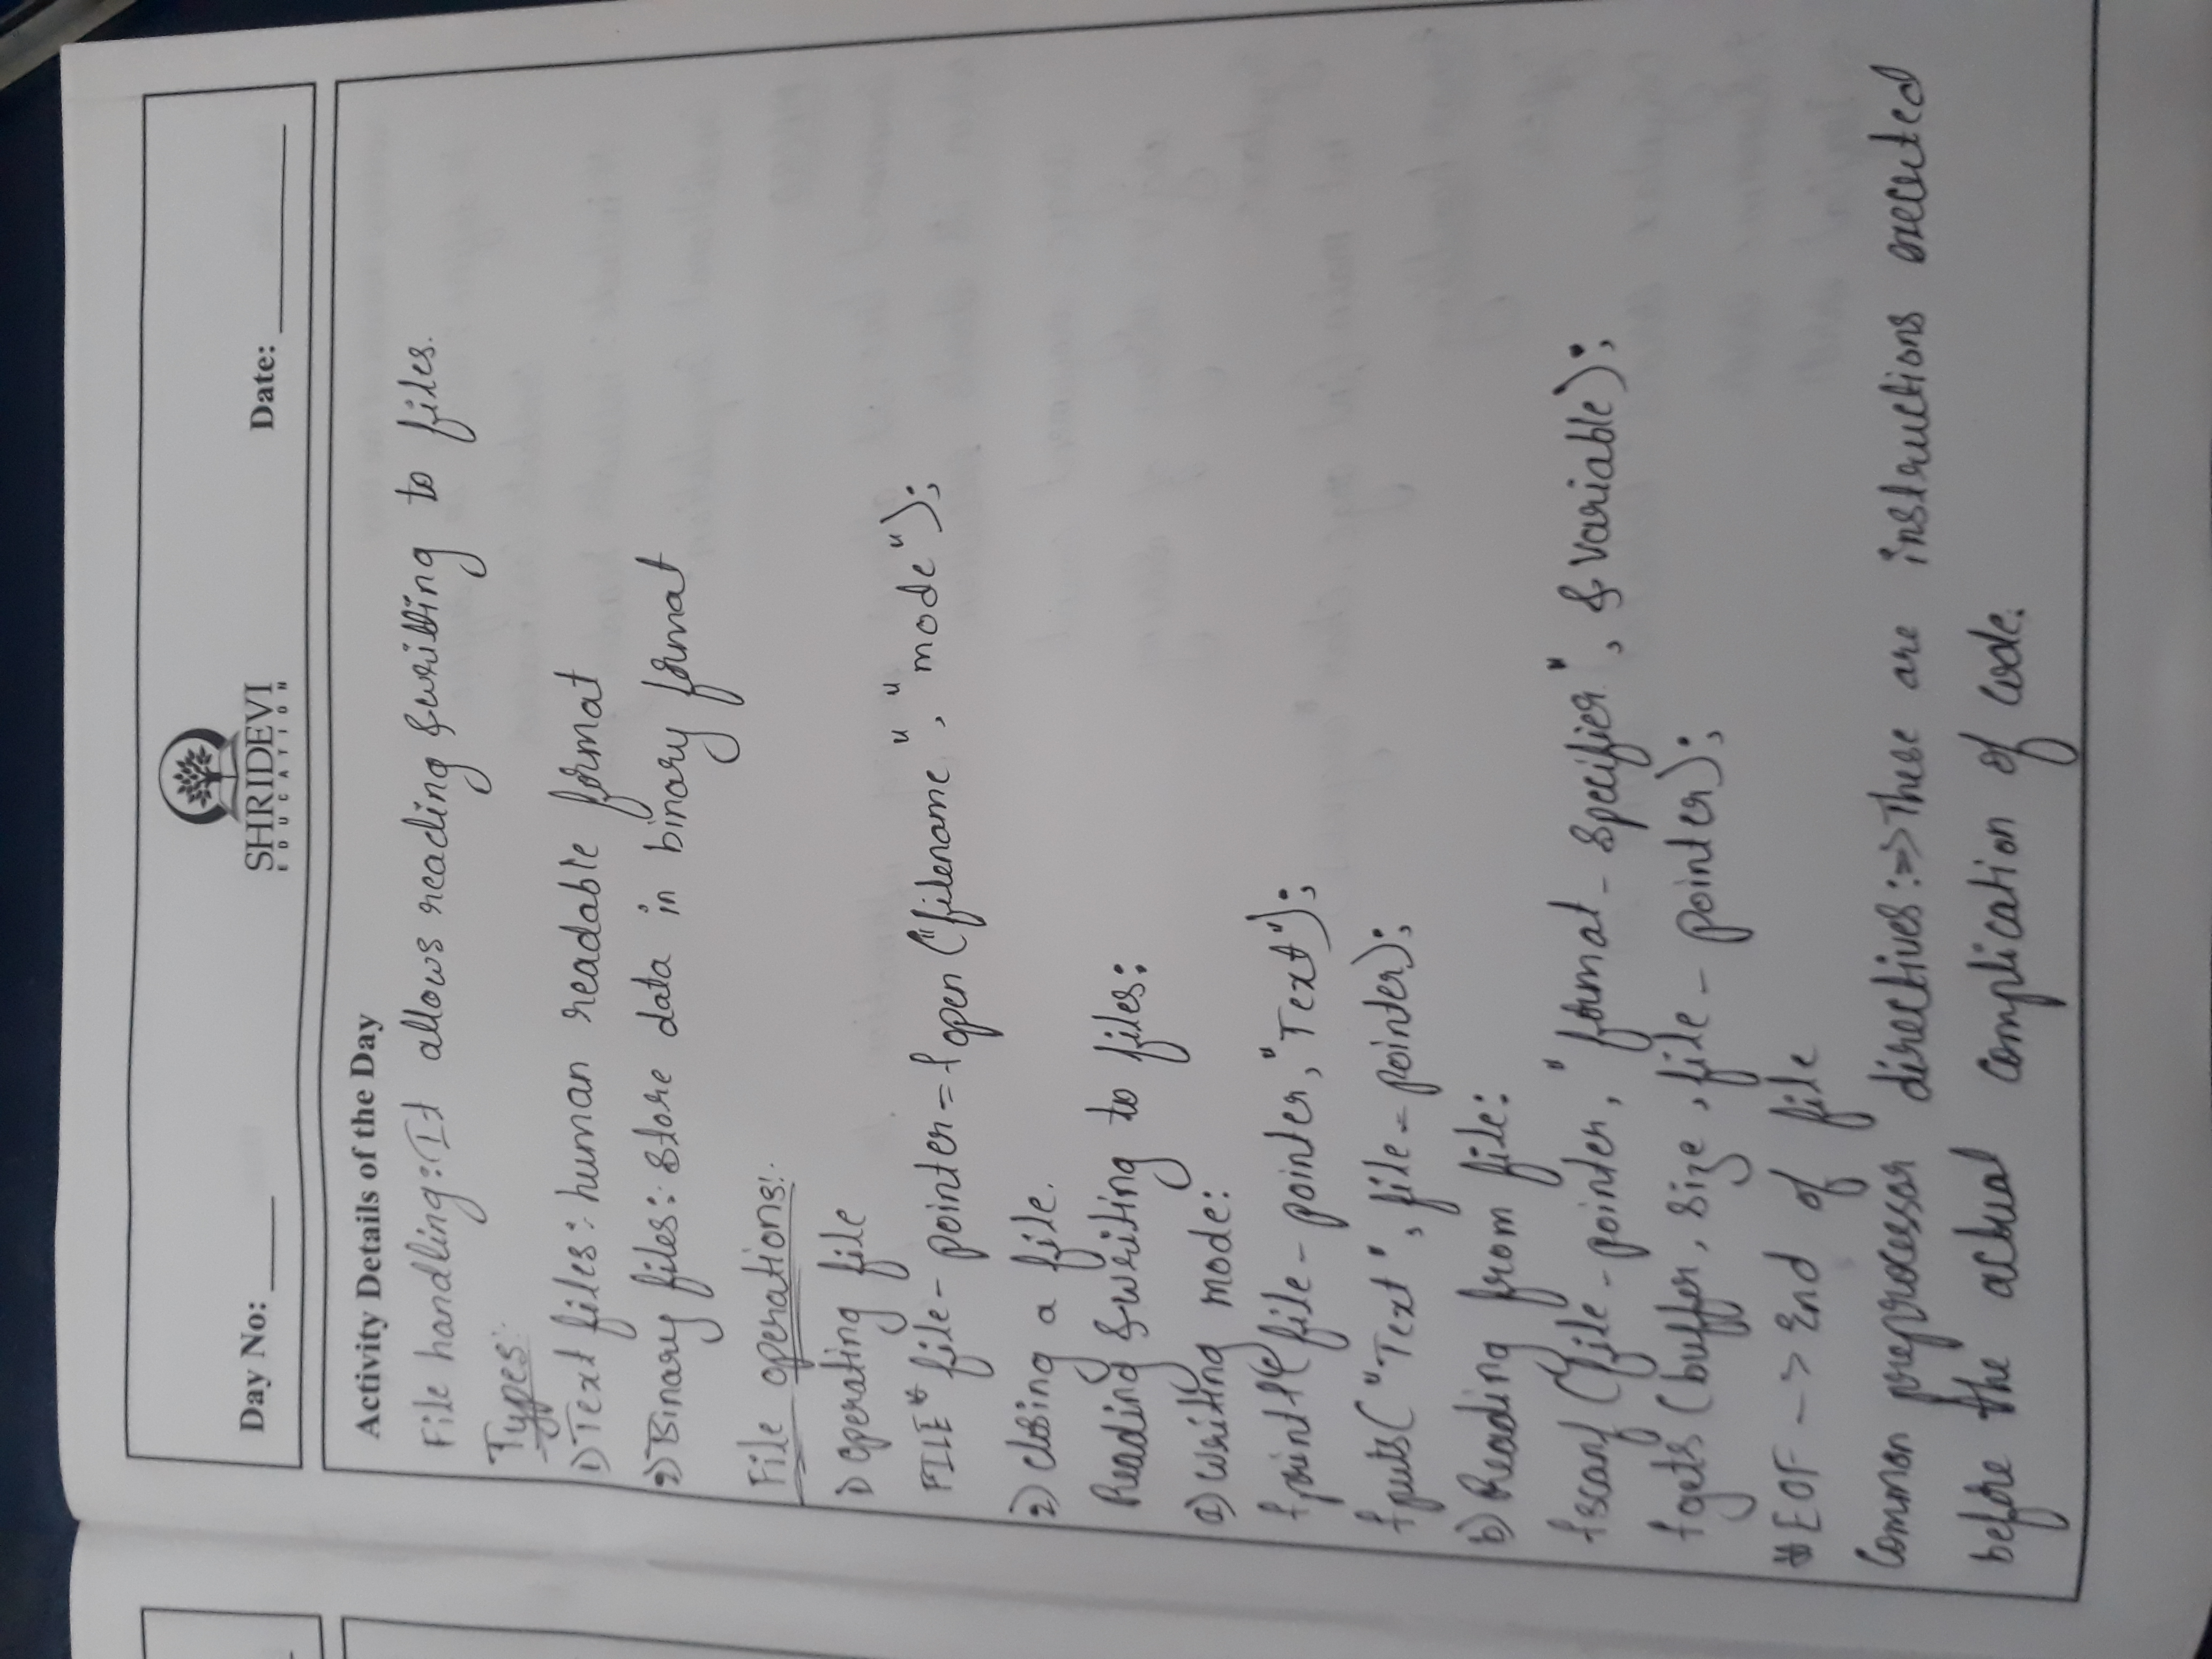 Day No:
SHRIDEVI
EDUCATION
Date:
Activity Details of the Day
File handling: It allows reading & writing to files.
Types:
1) Text files: human readable format
2) Binary files: store data in binary format
File operations:
1) Operating file
FILE* file-pointer = fopen ("filename", "mode");
2) closing a file.
Reading & writing to files:
a) writing mode:
fprintf(file-pointer, "Text");
fputs("Text", file-pointer);
b) Reading from file:
fscanf (file-pointer, "format-specifier", &variable);
fgets (buffer, size, file-pointer);
#EOF -> End of file
Common preprocessor directives:=> These are instructions executed
before the actual complication of code.